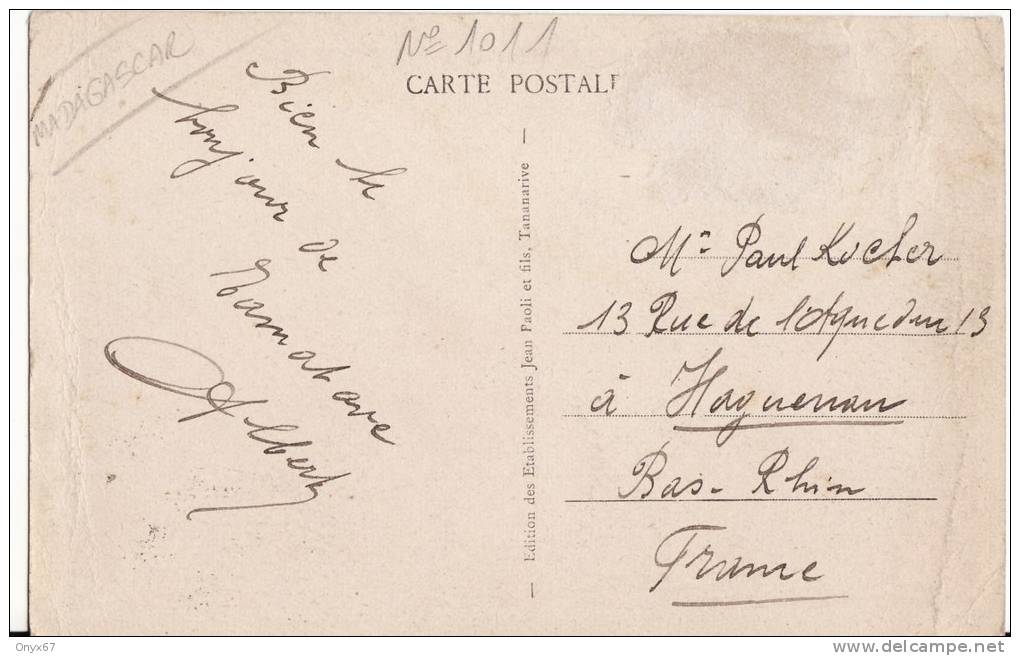 MADAGASCAR
Nº 1011
CARTE POSTALE
Bien le
bonjour de
Tamatave
Albert
— Edition des Etablissements Jean Paoli et fils, Tananarive —
Mr Paul Kocher
13 Rue de l'Aqueduc 13
à Haguenau
Bas-Rhin
France
Onyx67
delcampe.net